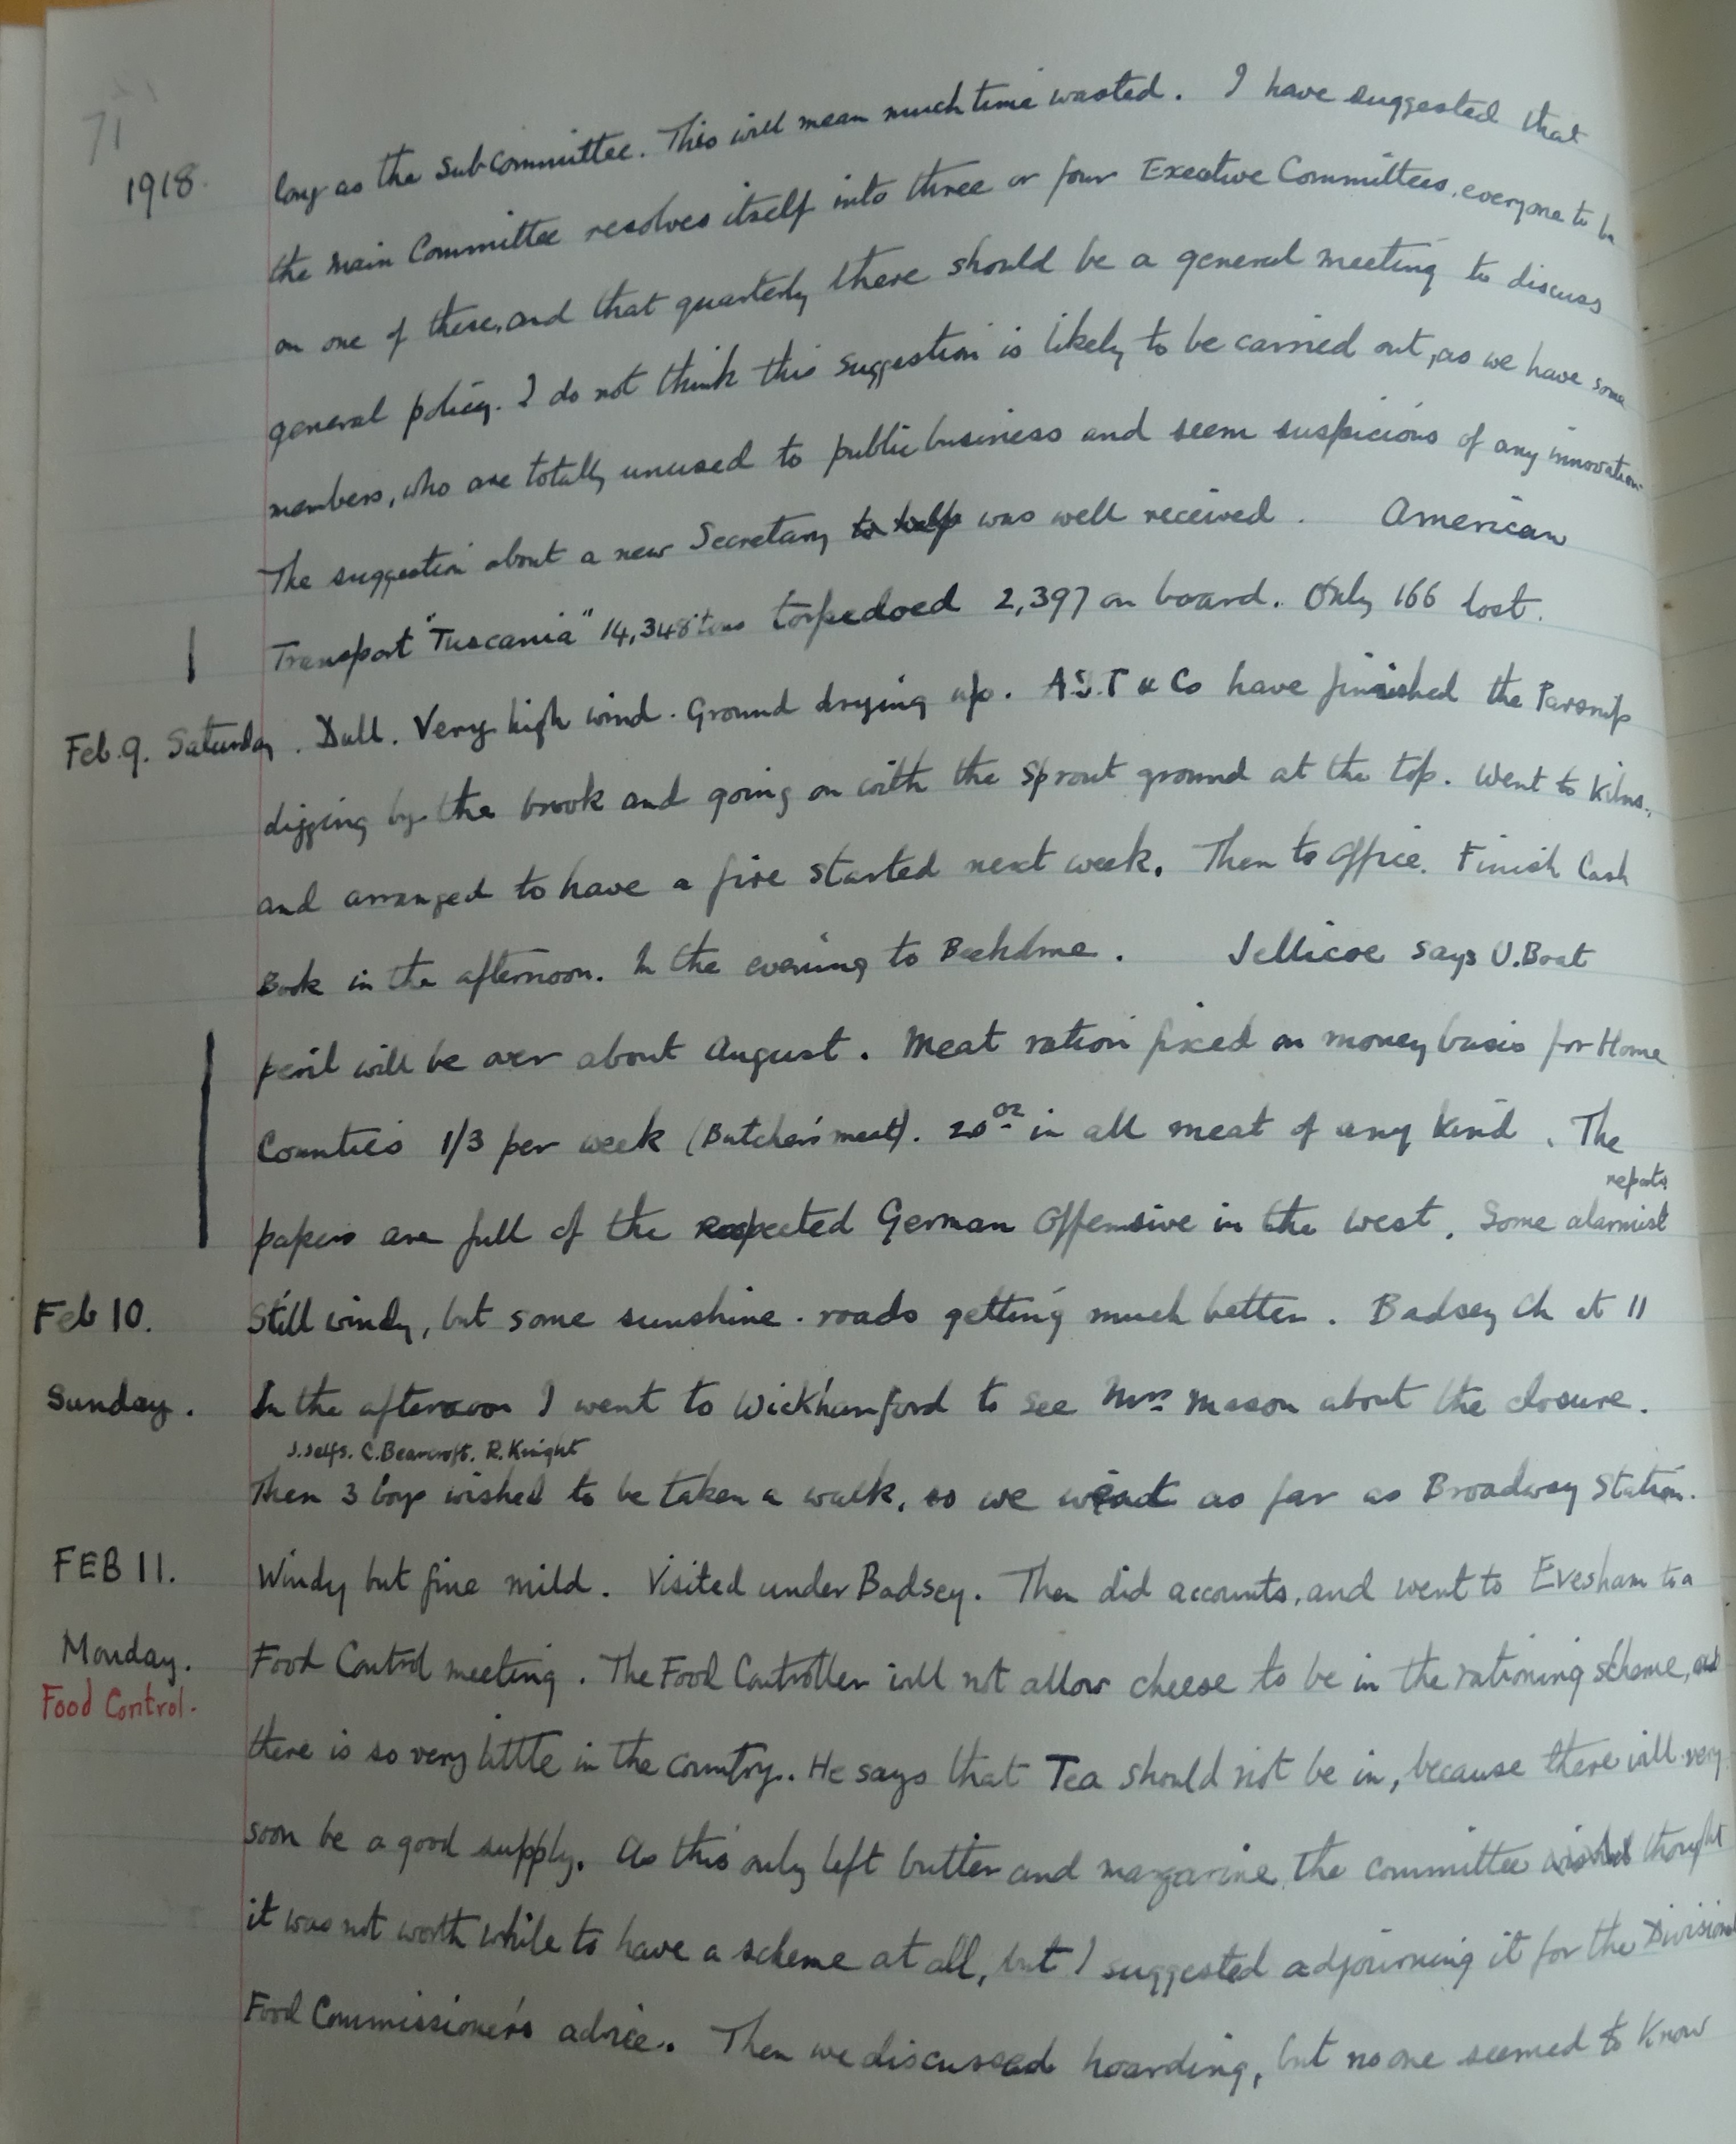 71
1918. long as the Sub Committee. This will mean much time wasted. I have suggested that
the Main Committee resolves itself into three or four Executive Committees, everyone to be
on one of these, and that quarterly there should be a general meeting to discuss
general policy. I do not think this suggestion is likely to be carried out, as we have some
members, who are totally unused to public business and seem suspicious of any innovation.
The suggestion about a new Secretary to help was well received. American
Transport "Tuscania" 14,348 tons torpedoed 2,397 on board. Only 166 lost.
Feb. 9. Saturday. Dull. Very high wind. Ground drying up. A.J.T & Co have finished the Parsnip
digging by the brook and going on with the sprout ground at the top. Went to Kilns,
and arranged to have a fire started next week. Then to Office. Finish Cash
Book in the afternoon. In the evening to Beehdme. Jellicoe says U.Boat
peril will be over about August. Meat ration fixed on money basis for Home
Counties 1/3 per week (Butcher's meat). 20 oz in all meat of any kind. The
reports
papers are full of the expected German Offensive in the west. Some alarmist
Feb 10. Still windy, but some sunshine. roads getting much better. Badsey Ch at 11
Sunday. In the afternoon I went to Wickhamford to see Mrs Mason about the closure.
J. Jelfs. C. Bearcroft. R. Knight
Then 3 boys wished to be taken a walk, so we went as far as Broadway Station.
FEB 11. Windy but fine mild. Visited under Badsey. Then did accounts, and went to Evesham to a
Monday. Food Control meeting. The Food Controller will not allow cheese to be in the rationing scheme, as
Food Control. there is so very little in the country. He says that Tea should not be in, because there will very
soon be a good supply. As this only left butter and margarine, the committee thought
it was not worth while to have a scheme at all, but I suggested adjourning it for the Divisional
Food Commissioner's advice. Then we discussed hoarding, but no one seemed to know